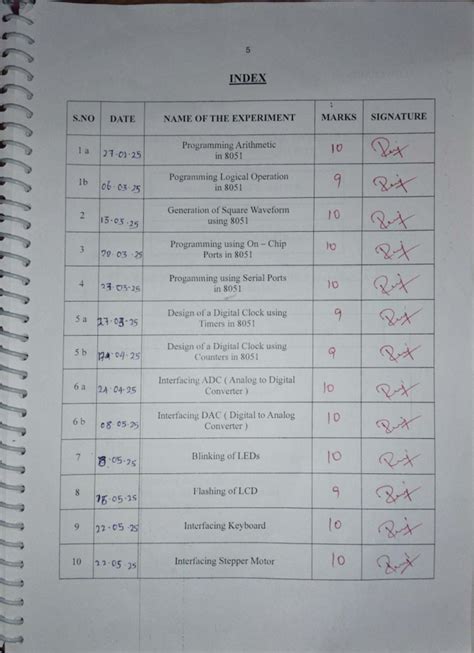 5
INDEX
S.NO DATE NAME OF THE EXPERIMENT MARKS SIGNATURE
1 a 27-02-25 Programming Arithmetic 10
in 8051
1b 06-03-25 Pogramming Logical Operation 9
in 8051
2 13-03-25 Generation of Square Waveform 10
using 8051
3 20-03-25 Programming using On – Chip 10
Ports in 8051
4 Progamming using Serial Ports 10
in 8051
5 a 27-03-25 Design of a Digital Clock using 9
Timers in 8051
5 b Design of a Digital Clock using 9
Counters in 8051
6 a 24-04-25 Interfacing ADC ( Analog to Digital 10
Converter )
6 b 08-05-25 Interfacing DAC ( Digital to Analog 10
Converter )
7 Blinking of LEDs 10
8 Flashing of LCD 9
9 22-05-25 Interfacing Keyboard 10
10 22-05-25 Interfacing Stepper Motor 10